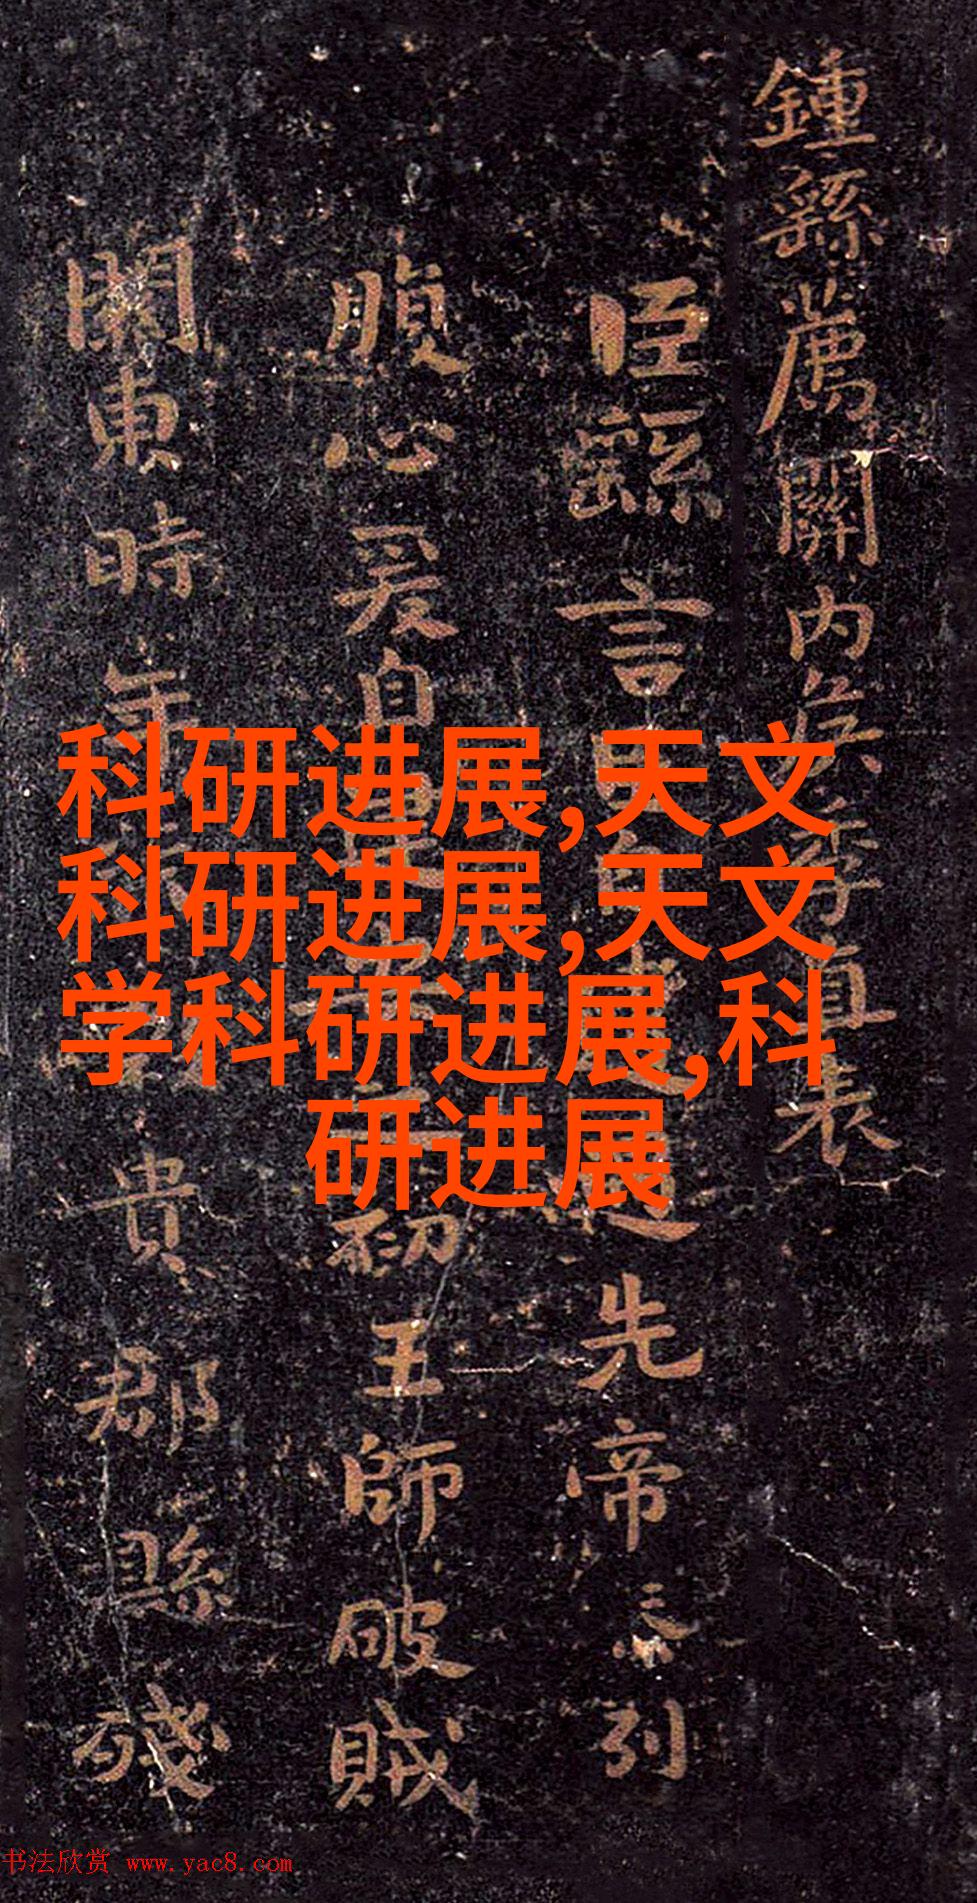 科研进展,天文
科研进展,天文
学科研进展,科
研进展
鍾繇薦關內侯季直表
臣繇言
先帝
列
腹心爰自
初王師破賊
關東時年
貴郡縣殘
书法欣赏 www.yac8.com